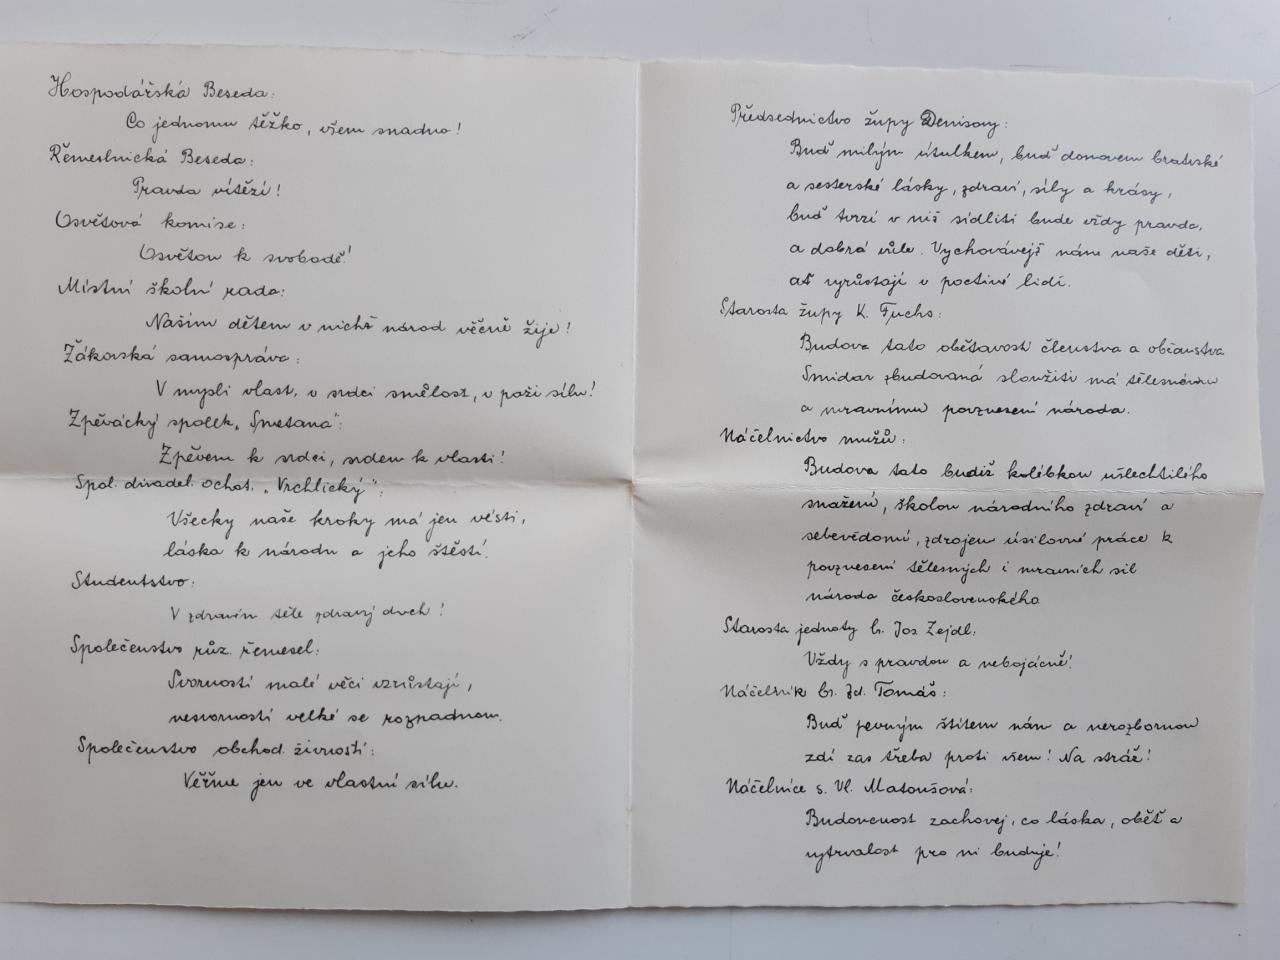 Hospodářská Beseda:
Co jednomu těžko, všem snadno!
Řemeslnická Beseda:
Pravda vítězí!
Osvětová komise:
Osvětou k svobodě!
Místní školní rada:
Našim dětem v nichž národ věčně žije!
Žákovská samospráva:
V mysli vlast, v srdci smělost, v paži sílu!
Zpěvácký spolek „Smetana":
Zpěvem k srdci, srdcem k vlasti!
Spol. divadel. ochot. „Vrchlický":
Všecky naše kroky má jen vésti,
láska k národu a jeho štěstí.
Studentstvo:
V zdravém těle zdravý duch!
Společenstvo růz. řemesel:
Svorností malé věci vzrůstají,
nesvorností velké se rozpadnou.
Společenstvo obchod. živností:
Věřme jen ve vlastní sílu.
Předsednictvo župy Denisovy:
Buď milým útulkem, buď domovem bratrské
a sesterské lásky, zdraví, síly a krásy,
buď tvrzí v niž sídliti bude vždy pravda,
a dobrá vůle. Vychovávejž nám naše děti,
ať vyrůstají v poctivé lidi.
Starosta župy K. Fuchs:
Budova tato obětavostí členstva a občanstva
Smidar zbudovaná sloužiti má tělesnému
a mravnímu povznesení národa.
Náčelnictvo mužů:
Budova tato budiž kolébkou ušlechtilého
snažení, školou národního zdraví a
sebevědomí, zdrojem úsilovné práce k
povznesení tělesných i mravních sil
národa československého
Starosta jednoty br. Jos Zejdl:
Vždy s pravdou a nebojácně!
Náčelník br. Zd. Tomáš:
Buď pevným štítem nám a nerozbornou
zdí zas třeba proti všem! Na stráž!
Náčelnice s. Vl. Matoušová:
Budoucnost zachovej, co láska, oběť a
vytrvalost pro ni buduje!